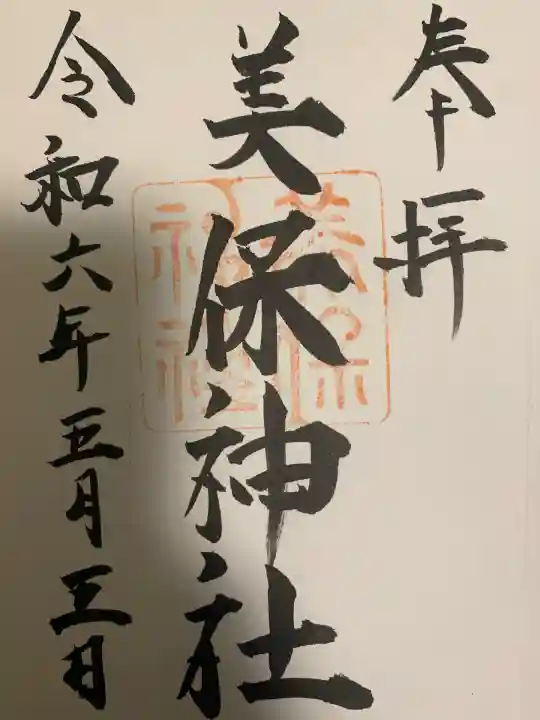 奉拝
美保神社
令和六年五月三日
美保
神社